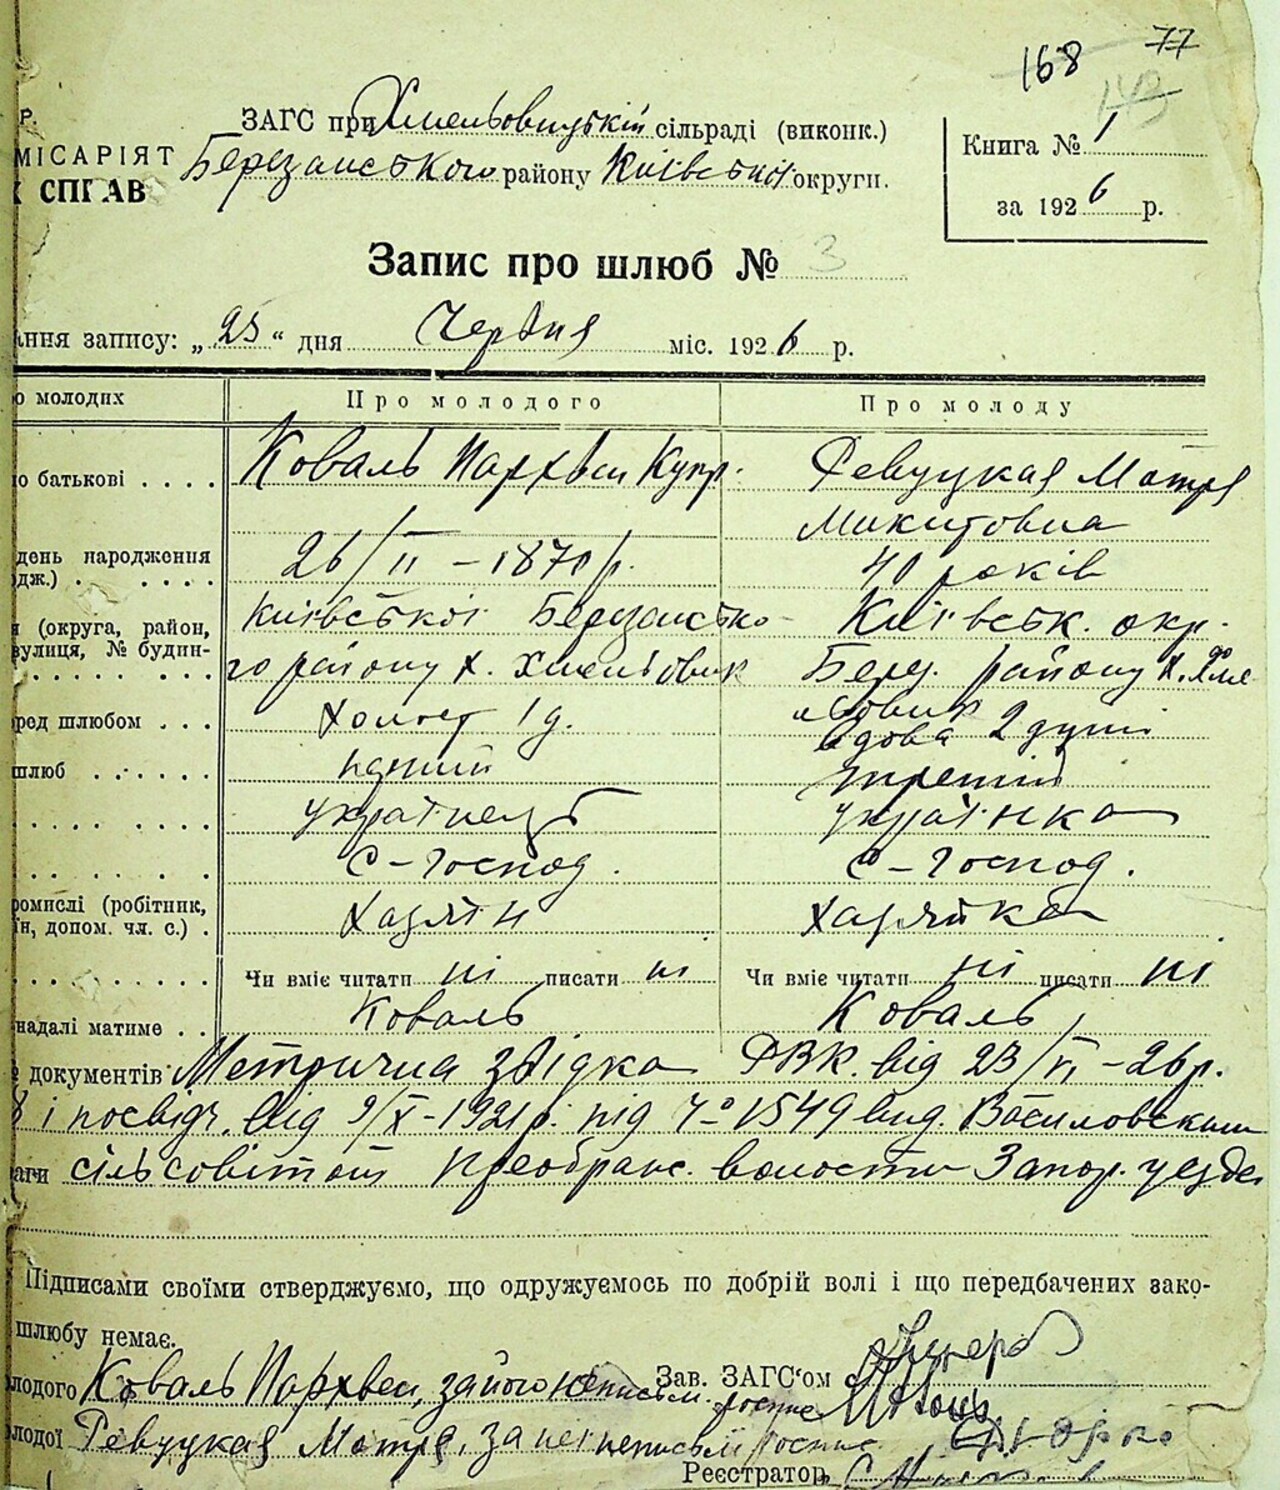 168 77
143
Р. ЗАГС при Хмельовицькій сільраді (виконк.)
МІСАРІЯТ Березанського району Київської округи.
СПРАВ
Книга № 1
за 1926 р.
Запис про шлюб № 3
ання запису: „25“ дня Червня міс. 1926 р.
о молодих Про молодого Про молоду
по батькові . . . . Коваль Пархвен Купр. Ревуцкая Мотря
Микитовна
день народження 26/II – 1870 р. 40 років
дж.) . . . . .
я (округа, район, Київської Березансько- Київськ. окр.
вулиця, № будин- го району х. Хмельовик Берез. району х. Хме
льовик
ред шлюбом . . . Холост 1 д. вдова 2 душі
шлюб . . . . . . третій
. . . . . . . . українець українка
. . . . . . . С-господ. С-господ.
ромислі (робітник, Хазяїн Хазяйка
їн, допом. чл. с.) .
. . . . . . . . . Чи вміє читати ні писати ні Чи вміє читати ні писати ні
надалі матиме . . Коваль Коваль
документів Метрична звідка РВК. від 23/VI – 26 р.
і посвідч. від 9/X – 1921 р. під № 1549 вид. Василовским
сільсовітом Преображ. волости Запор. уезда
Підписами своїми стверджуємо, що одружуємось по добрій волі і що передбачених зако-
шлюбу немає.
лодого Коваль Пархвен, за його неписьм. роспис Зав. ЗАГС'ом
лодої Ревуцкая Мотря, за неї неписьм роспис
Реєстратор